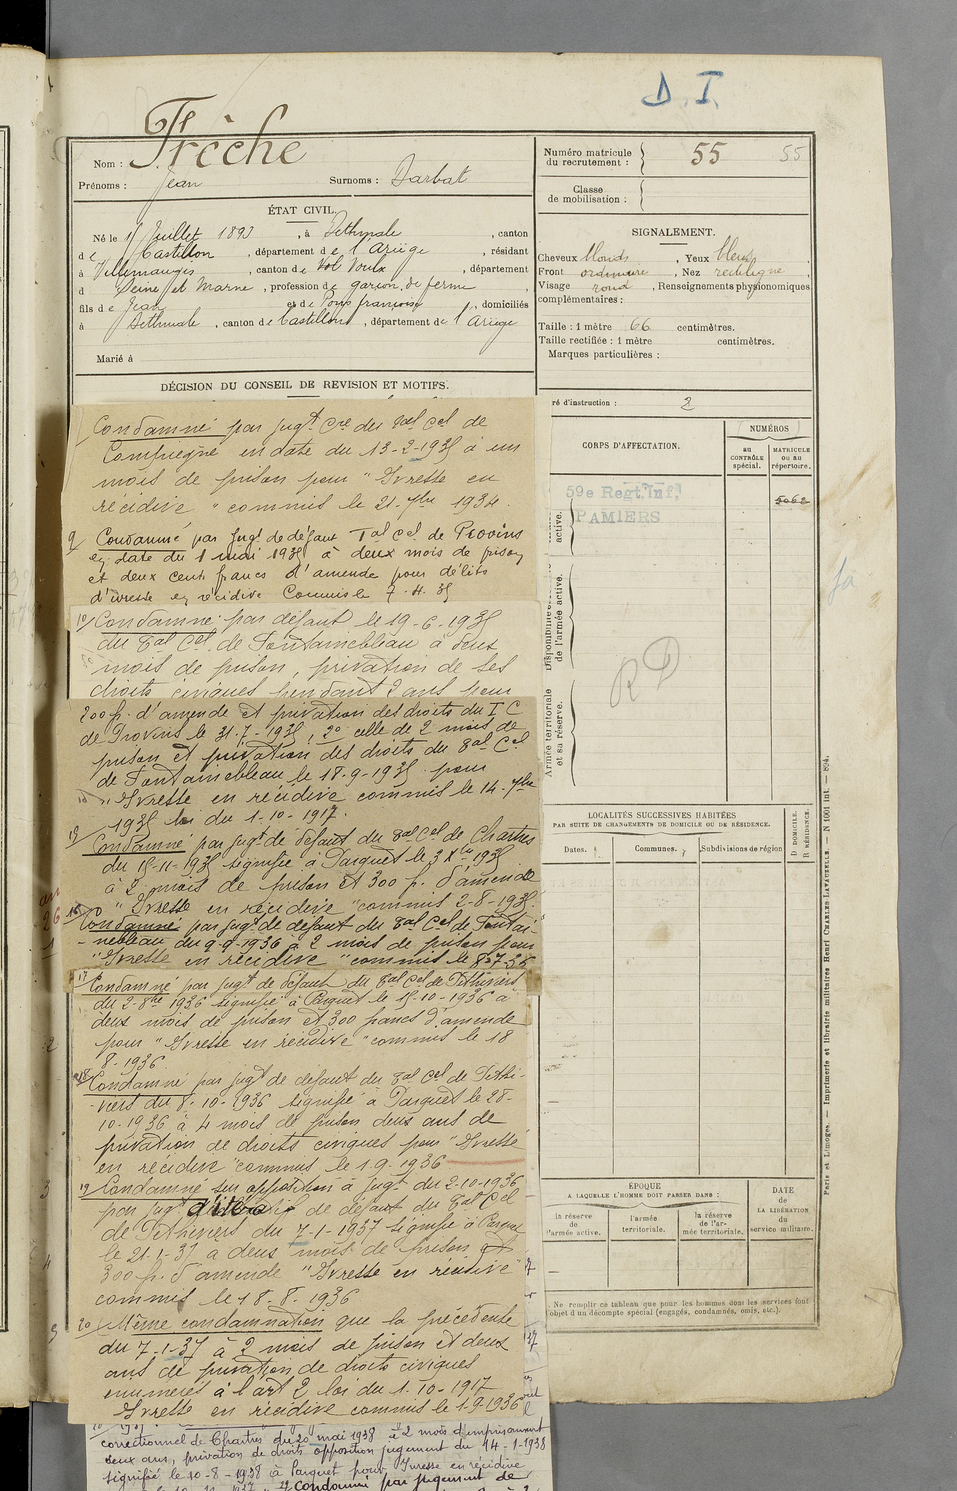 D. I.
Nom : Frèche
Prénoms : Jean Surnoms : Darbat
Numéro matricule du recrutement : 55 55
Classe de mobilisation :
ÉTAT CIVIL.
Né le 15 Juillet 1893, à Bethmale, canton
de Castillon, département de l'Ariège, résidant
à Villemaugis, canton de, département
d Seine et Marne, profession de garçon de ferme
fils de Jean et de Pons françoise, domiciliés
à Bethmale, canton de Castillon, département de l'Ariège
Marié à
SIGNALEMENT.
Cheveux blonds, Yeux bleus
Front ordinaire, Nez rectiligne,
Visage rond, Renseignements physionomiques
complémentaires :
Taille : 1 mètre 66 centimètres.
Taille rectifiée : 1 mètre centimètres.
Marques particulières :
DÉCISION DU CONSEIL DE REVISION ET MOTIFS.
Condamné par jugt Cre du Bal Cel de
Compiègne en date du 13-2-1935 à un
mois de prison pour "Ivresse en
récidive" commis le 21-7bre 1934.
9/ Condamné par Jugt de défaut Tal Cel de Provins
en date du 1 mai 1935 à deux mois de prison
et deux cent francs d'amende pour délits
d'ivresse en récidive Commis le 7.4.35
10/ Condamné par défaut le 19-6-1935
du Bal Cel de Fontainebleau à deux
mois de prison, privation de ses
droits civiques pendant 2 ans pour
200 f. d'amende et privation des droits du T C
de Provins le 31-7-1935, 2° celle de 2 mois de
prison et privation des droits du Bal Cel
de Fontainebleau le 18-9-1935 pour
"Ivresse en récidive commis le 14-7bre
1935 du 1-10-1917.
15/ Condamné par jugt de défaut du Bal Cel de Chartres
du 15-11-1935 signifié à Parquet le 3 Xbre 1935
à 2 mois de prison et 300 f. d'amende
"Ivresse en récidive" commis 2-8-1935.
16/ Condamné par jugt de défaut du Bal Cel de Fontai-
-nebleau du 9-9-1936 à 2 mois de prison pour
"Ivresse en récidive" commis le
17 Condamné par jugt de défaut du Bal Cel de Pithiviers
du 2-8bre 1936 signifié à Parquet le 15-10-1936 à
deux mois de prison et 300 francs d'amende
pour "Ivresse en récidive" commis le 18
8-1936.
18/ Condamné par jugt de défaut du Bal Cel de Pithi-
-viers du 8-10-1936 signifié à Parquet le 28-
10-1936 à 4 mois de prison deux ans de
privation de droits civiques pour "Ivresse
en récidive" commis le 1.9.1936
19/ Condamné sur opposition à Jugt du 2-10-1936
par jugt de défaut du Bal Cel
de Pithiviers du 7-1-1937 signifié à Parquet
le 21-1-37 à deux mois de prison et
300 f. d'amende "Ivresse en récidive"
commis le 18-8-1936
20/ Même condamnation que la précédente
du 7-1-37 à 2 mois de prison et deux
ans de privation de droits civiques
enumérés à l'art 2 loi du 1-10-1917
Ivresse en récidive commis le 1-9-1936
correctionnel de Chartres du 20 mai 1938 à 2 mois d'emprisonnement
deux ans, privation de droits opposition jugement du 14-1-1938
signifié le 10-8-1938 à Parquet pour Ivresse en récidive
Condamné par jugement de
ré d'instruction : 2
CORPS D'AFFECTATION.
NUMÉROS
au CONTRÔLE spécial.
MATRICULE OU AU répertoire.
59e Regt. Inf.
PAMIERS
5062
active.
Disponibilité de l'armée active.
Armée territoriale et sa réserve.
RD
fa
LOCALITÉS SUCCESSIVES HABITÉES
PAR SUITE DE CHANGEMENTS DE DOMICILE OU DE RÉSIDENCE.
Dates. Communes. Subdivisions de région
D. DOMICILE.
R. RÉSIDENCE.
ÉPOQUE
A LAQUELLE L'HOMME DOIT PASSER DANS :
la réserve de l'armée active.
l'armée territoriale.
la réserve de l'armée territoriale.
DATE de LA LIBÉRATION du service militaire.
Ne remplir ce tableau que pour les hommes dont les services font
l'objet d'un décompte spécial (engagés, condamnés, omis, etc.).
Paris et Limoges. — Imprimerie et librairie militaires Henri CHARLES-LAVAUZELLE. — N 1001 int. — 894.